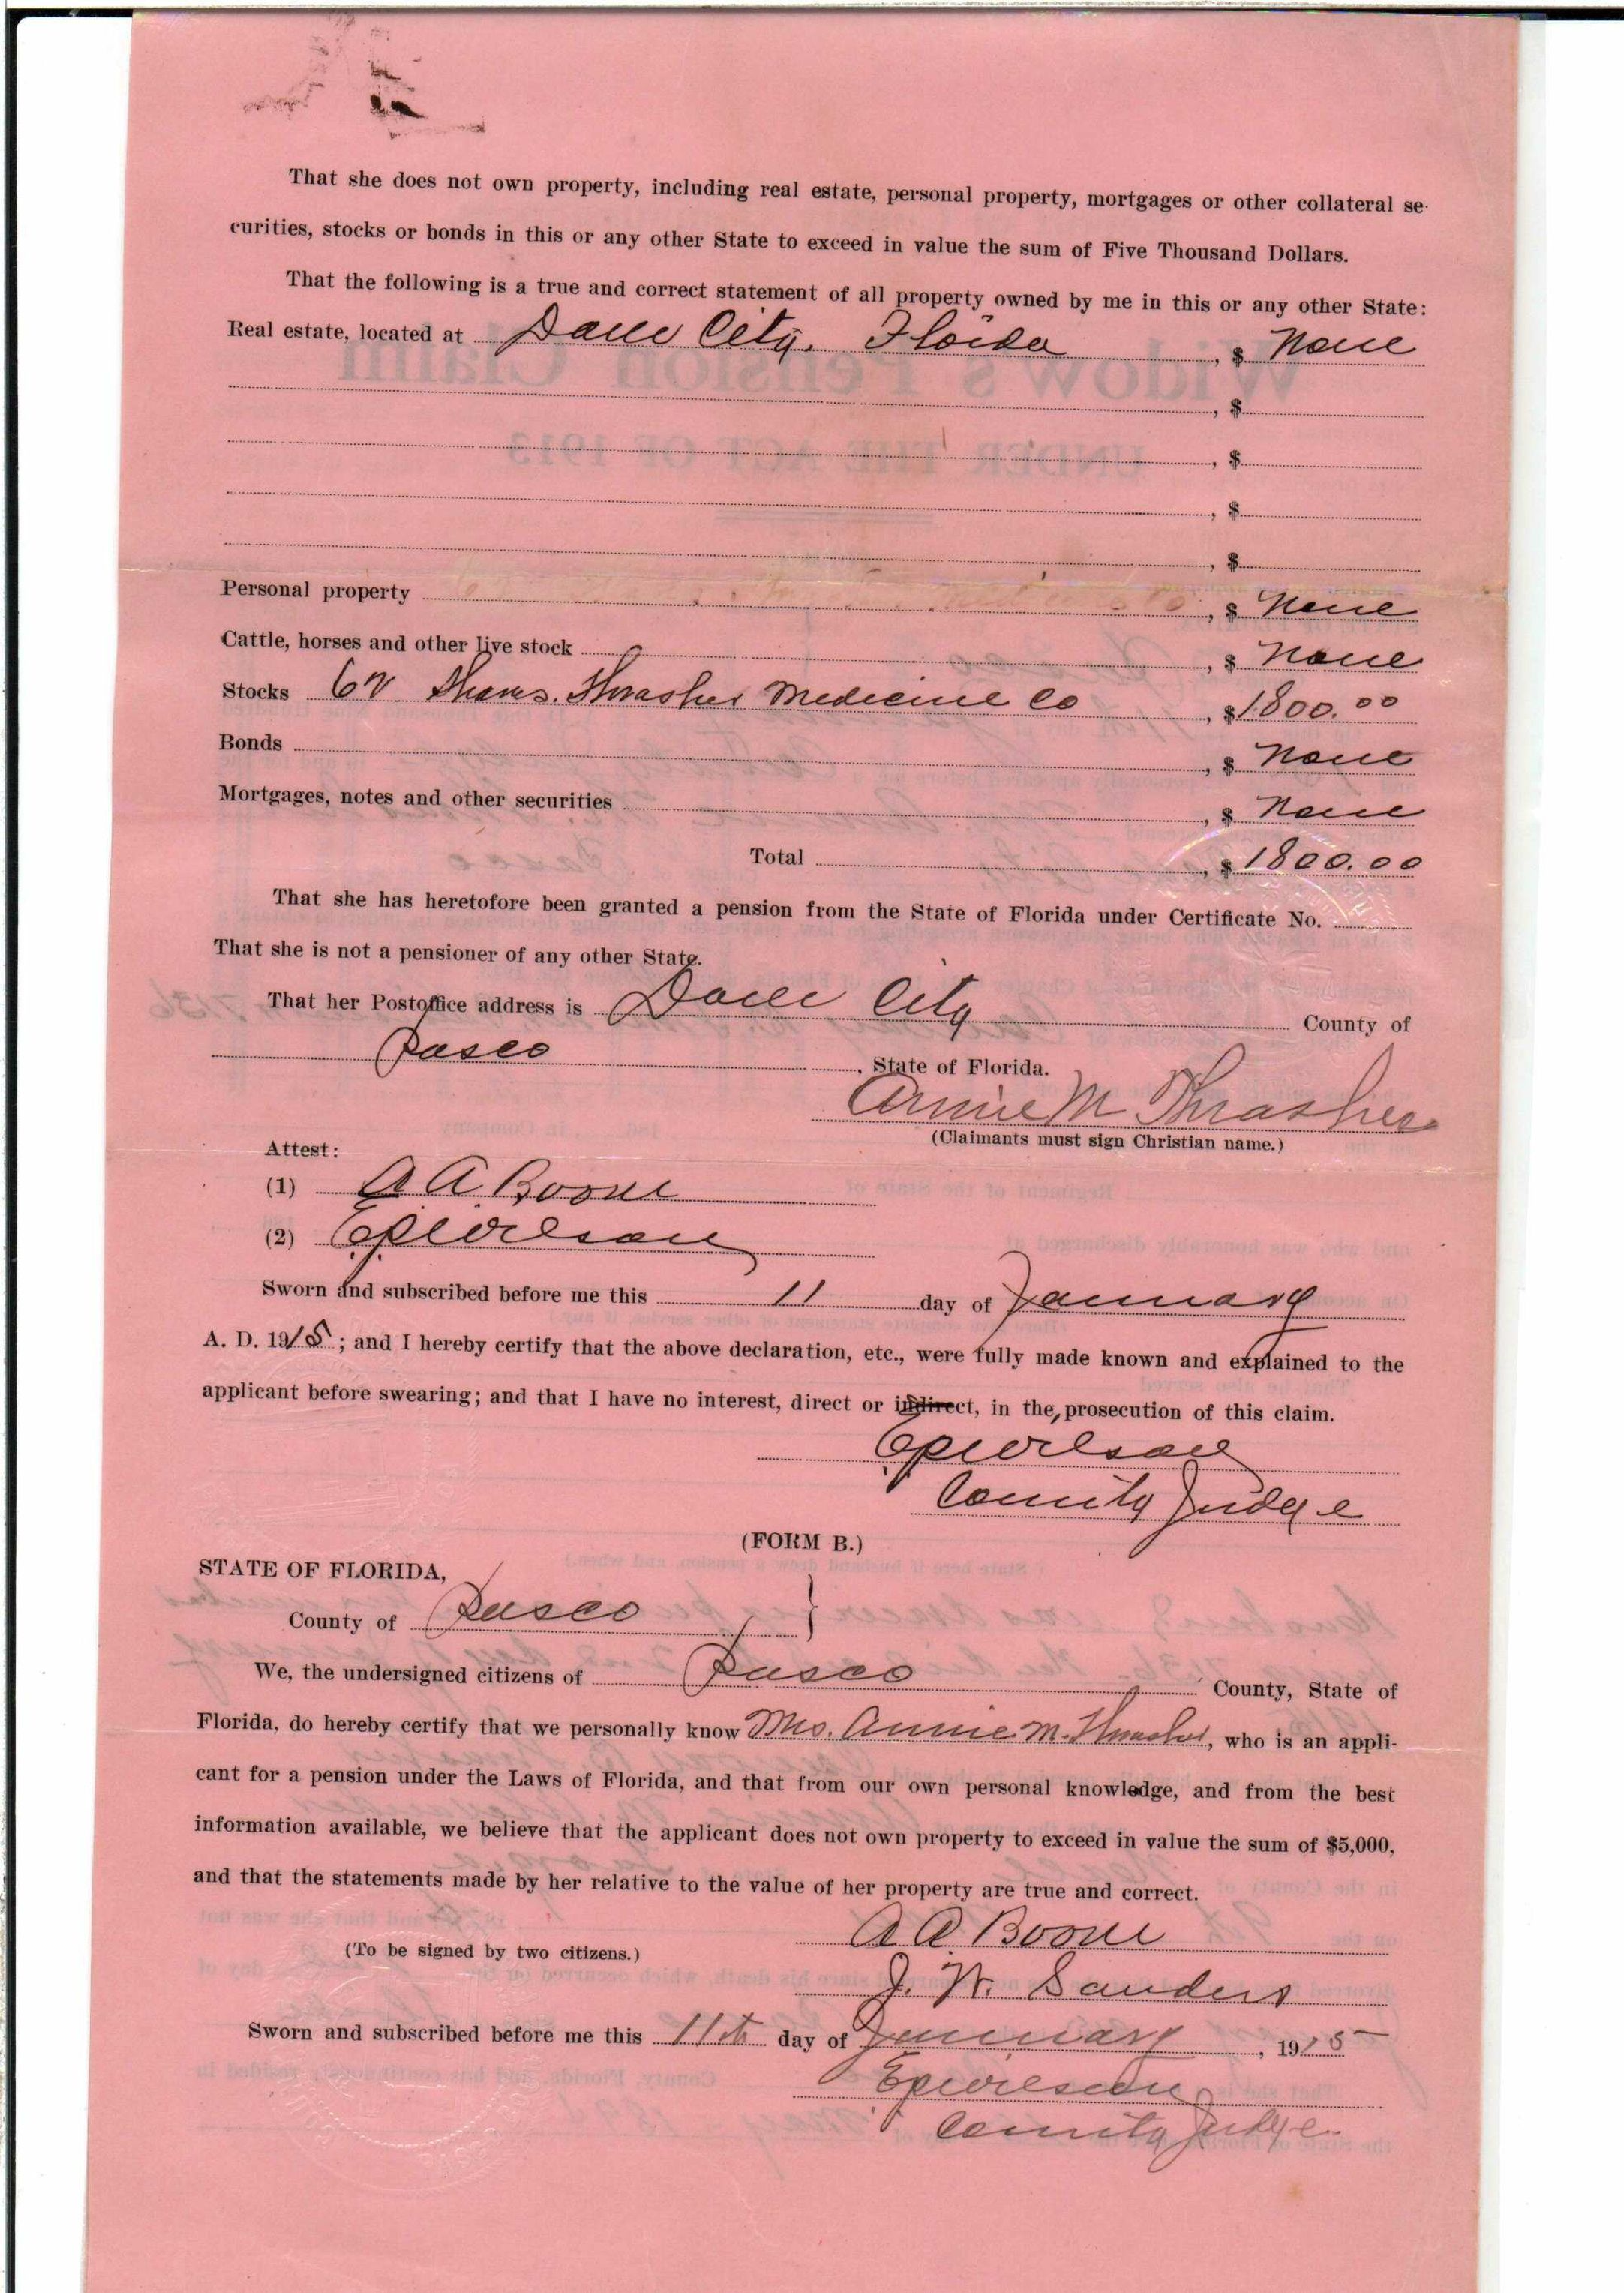 That she does not own property, including real estate, personal property, mortgages or other collateral se-
curities, stocks or bonds in this or any other State to exceed in value the sum of Five Thousand Dollars.
That the following is a true and correct statement of all property owned by me in this or any other State:
Real estate, located at Dade City, Florida, $ None
, $
, $
, $
, $
Personal property , $ None
Cattle, horses and other live stock , $ None
Stocks Shares. Thrasher Medicine Co , $1800.00
Bonds , $ None
Mortgages, notes and other securities , $ None
Total , $1800.00
That she has heretofore been granted a pension from the State of Florida under Certificate No.
That she is not a pensioner of any other State.
That her Postoffice address is Dade City County of
Pasco, State of Florida.
Annie M Thrasher
(Claimants must sign Christian name.)
Attest:
(1) A A Boone
(2) E.P. Wilson
Sworn and subscribed before me this 11 day of January
A. D. 1915; and I hereby certify that the above declaration, etc., were fully made known and explained to the
applicant before swearing; and that I have no interest, direct or indirect, in the prosecution of this claim.
E.P. Wilson
County Judge
(FORM B.)
STATE OF FLORIDA,
County of Pasco }
We, the undersigned citizens of Pasco County, State of
Florida, do hereby certify that we personally know Mrs. Annie M. Thrasher, who is an appli-
cant for a pension under the Laws of Florida, and that from our own personal knowledge, and from the best
information available, we believe that the applicant does not own property to exceed in value the sum of $5,000,
and that the statements made by her relative to the value of her property are true and correct.
A A Boone
(To be signed by two citizens.)
J. W. Sanders
Sworn and subscribed before me this 11th day of January, 1915
E.P. Wilson
County Judge.